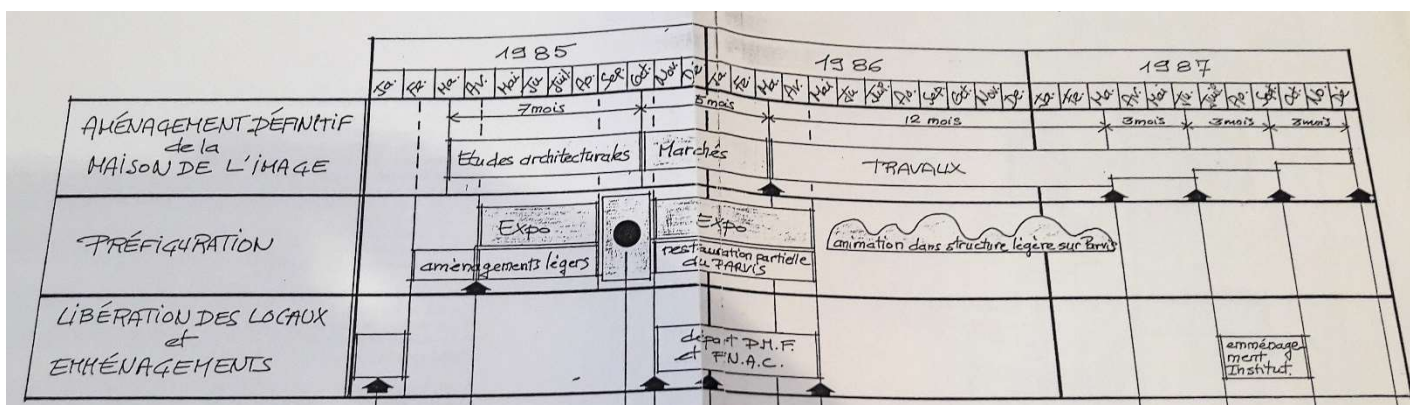 1985
1986
1987
Ja. Fe. Ma. Av. Mai Ju. Juil. Ao. Sep. Oct. Nov. De Ja Fe. Ma. Av. Mai Ju. Jui. Ao. Sep. Oct. Nov. De. Ja. Fe Ma. Av. Mai Ju. Juil. Ao. Sept. Oct. No. De
AMÉNAGEMENT DÉFINITIF
de la
MAISON DE L'IMAGE
7 mois
5 mois
12 mois
3 mois
3 mois
3 mois
Etudes architecturales
Marchés
TRAVAUX
PRÉFIGURATION
Expo
aménagements légers
Expo
restauration partielle
du PARVIS
animation dans structure légère sur Parvis
LIBÉRATION DES LOCAUX
et
EMMÉNAGEMENTS
départ P.M.F.
et F.N.A.C.
emménage
ment
Institut.